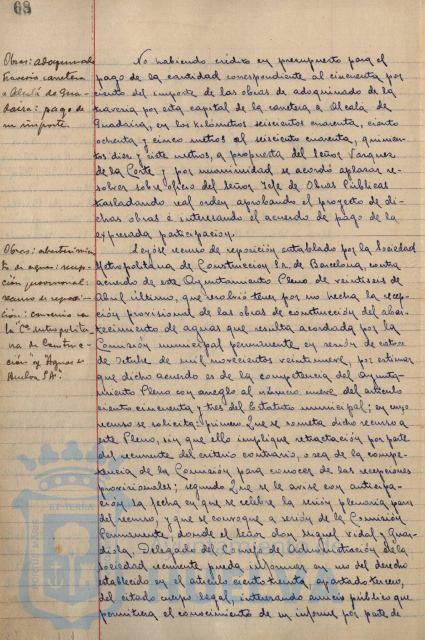 68
Obras: adoquinado
travesía carretera
a Alcalá de Gua-
daira: pago de
su importe.
No habiendo crédito en presupuesto para el
pago de la cantidad correspondiente al cincuenta por
ciento del importe de las obras de adoquinado de la
travesía por esta capital de la carretera a Alcalá de
Guadaira, en los kilómetros seiscientos cuarenta, ciento
ochenta y cinco metros al seiscientos cuarenta, quinien-
tos diez y siete metros, a propuesta del Señor Vazquez
de la Corte y por unanimidad se acordó aplazar re-
solver sobre oficio del Señor Jefe de Obras Públicas
trasladando real orden aprobando el proyecto de di-
chas obras é interesando el acuerdo de pago de la
expresada participación.
Obras: abastecimien-
to de aguas: recep-
ción provisional:
recurso de reposi-
ción: convenio con
la "Cª Metropolita-
na de Construc-
ción" y "Aguas de
Huelva S.A".
Leyóse recurso de reposición entablado por la Sociedad
Metropolitana de Construcción S.A. de Barcelona, contra
acuerdo de este Ayuntamiento Pleno de veintiseis de
Abril último, que resolvió tener por no hecha la recep-
ción provisional de las obras de construcción del abas-
tecimiento de aguas que resulta acordada por la
Comisión municipal permanente en sesión de catorce
de Octubre de mil novecientos veintinueve, por estimar
que dicho acuerdo es de la competencia del Ayunta-
miento Pleno con arreglo al número nueve del artículo
ciento cincuenta y tres del Estatuto municipal; en cuyo
recurso se solicita: primero Que se someta dicho recurso a
este Pleno, sin que ello implique retractación por parte
del recurrente del criterio contrario, o sea de la compe-
tencia de la Comisión para conocer de las recepciones
provisionales; segundo Que se le avise con anticipa-
ción la fecha en que se celebre la sesión plenaria para
del recurso, y que se convoque a sesión de la Comisión
Permanente, donde el señor don Miguel Vidal y Guar-
diola, Delegado del Consejo de Administración de la
Sociedad recurrente pueda informar en uso del derecho
establecido en el artículo ciento treinta, apartado tercero,
del citado cuerpo legal, interesando anuncio público que
permitiera el conocimiento de su informe por parte de